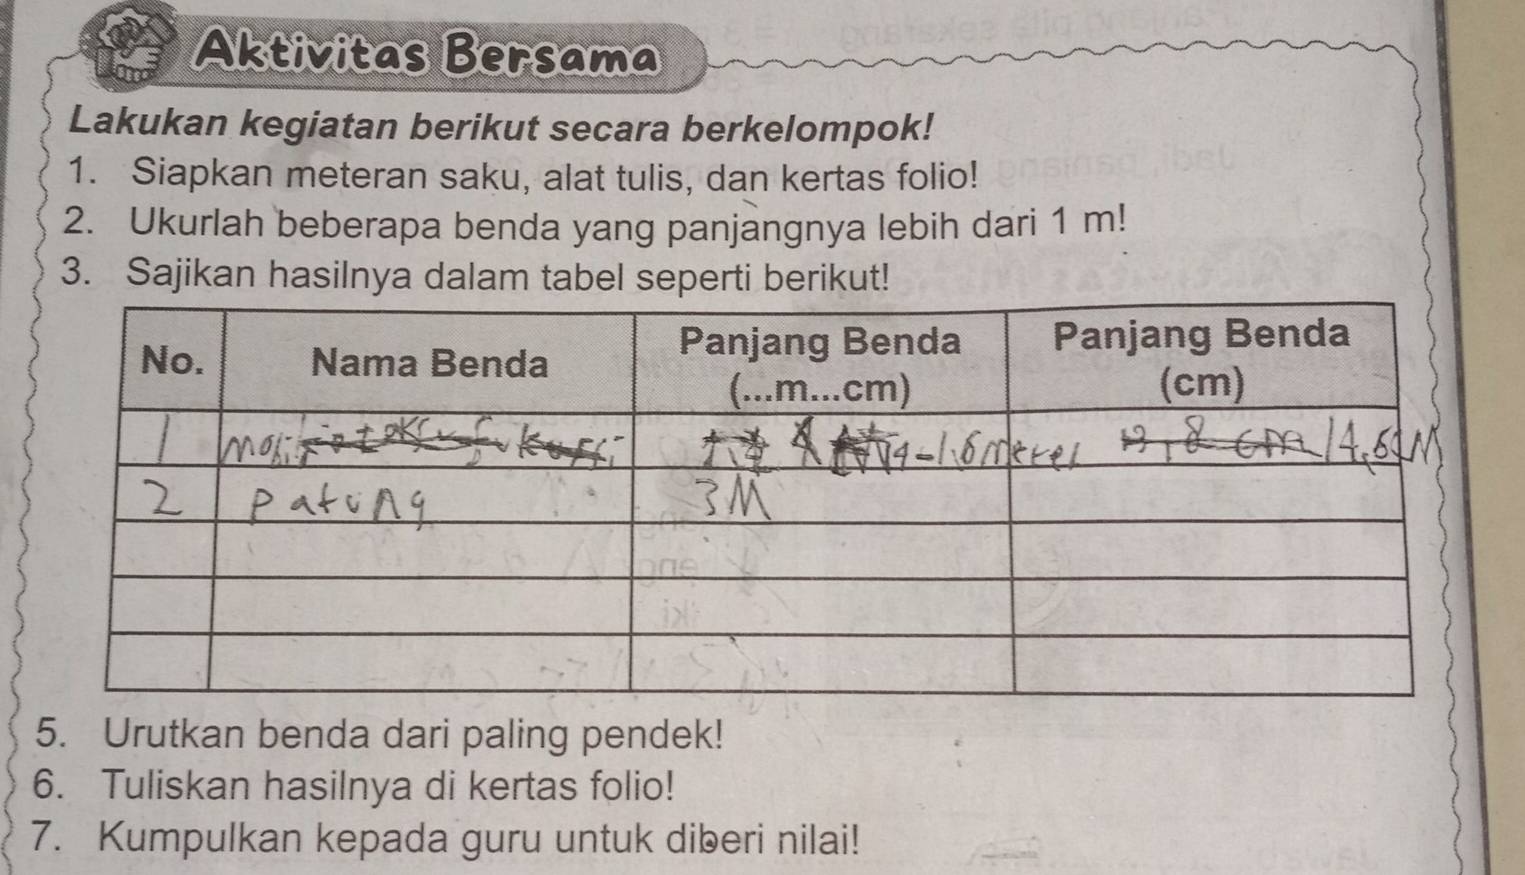 Aktivitas Bersama
Lakukan kegiatan berikut secara berkelompok!
1. Siapkan meteran saku, alat tulis, dan kertas folio!
2. Ukurlah beberapa benda yang panjangnya lebih dari 1 m!
3. Sajikan hasilnya dalam tabel seperti berikut!
No. Nama Benda Panjang Benda (...m...cm) Panjang Benda (cm)
1
2 Patung 3M
5. Urutkan benda dari paling pendek!
6. Tuliskan hasilnya di kertas folio!
7. Kumpulkan kepada guru untuk diberi nilai!